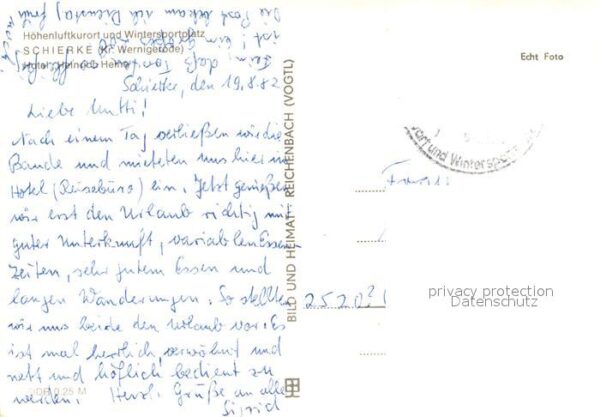 Höhenluftkurort und Wintersportplatz
SCHIERKE (Kr. Wernigerode)
Hotel „Heinrich Heine“
Schierke, den 19.8.82
Liebe Mutti!
Nach einem Tag verließen wir die
Baude und mieteten uns hier im
Hotel (Reisebüro) ein. Jetzt genießen
wir erst den Urlaub richtig mit
guter Unterkunft, variablen Essen-
zeiten, sehr gutem Essen und
langen Wanderungen. So stellten
wir uns beide den Urlaub vor. Es
ist mal herrlich, verwöhnt und
nett und höflich bedient zu
werden. Herzl. Grüße an alle
Sigrid
Die Post bekam ich Dienstag früh
ist! ein großes
daß
BILD UND HEIMAT REICHENBACH (VOGTL)
Echt Foto
ort und Wintersport
Frau
25202
privacy protection
Datenschutz
0,25 M